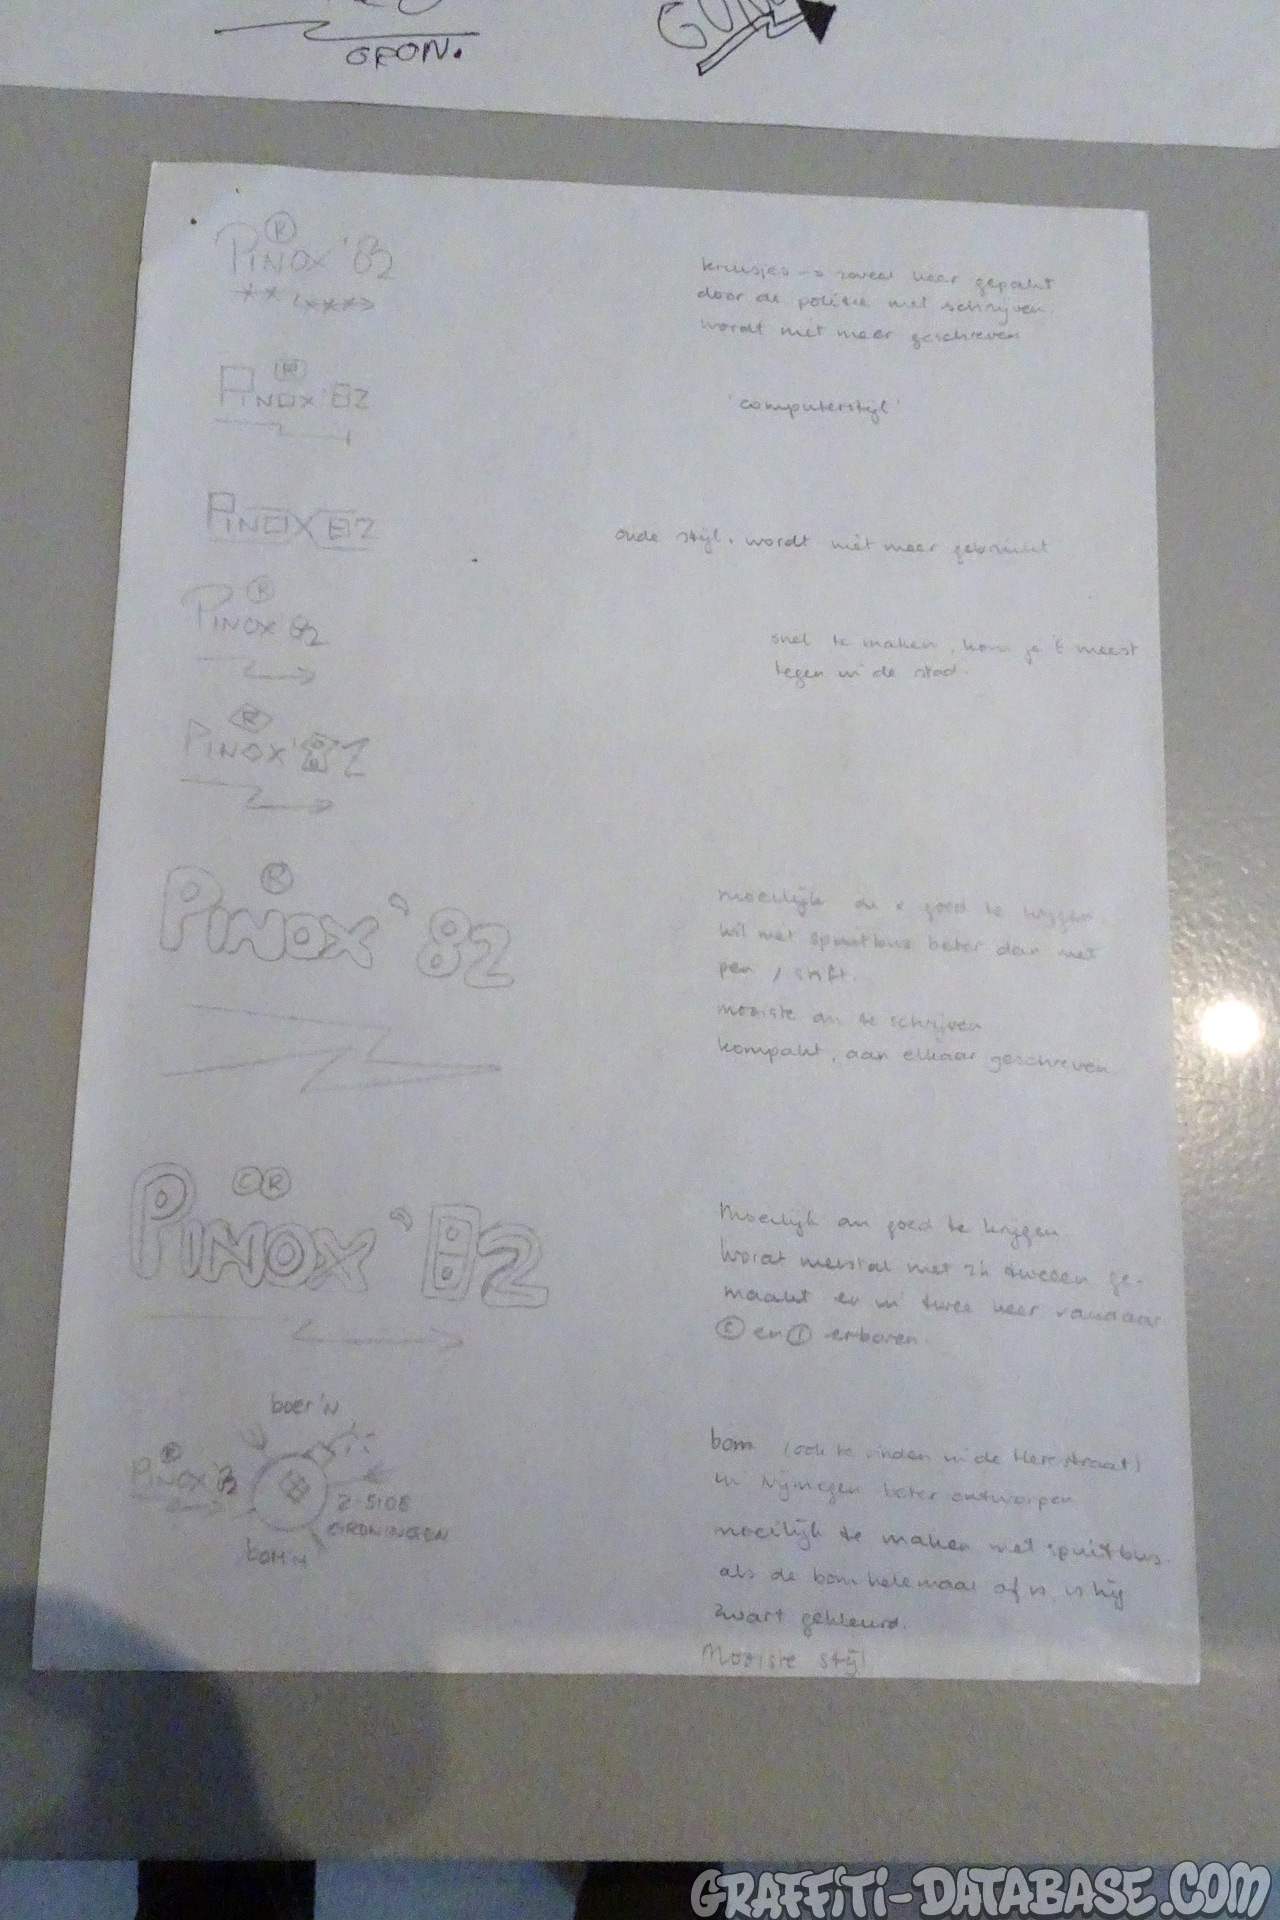 GRON.
Ⓡ
PINOX '82
kruisjes → zoveel keer gepakt
door de politie met schrijven.
wordt niet meer geschreven
R
PINOX '82
'computerstijl'
PINOX 82
oude stijl, wordt niet meer gebruikt
Ⓡ
PINOX '82
snel te maken, kom je 't meest
tegen in de stad.
R
PINOX '82
Ⓡ
PINOX '82
moeilijk om goed te krijgen.
wil met spuitbus beter dan met
pen / stift.
mooiste om te schrijven
kompakt, aan elkaar geschreven.
ⒸⓇ
PINOX '82
Moeilijk om goed te krijgen
Wordt meestal met z'n tweeën ge-
maakt en in twee keer vandaar
Ⓒ en Ⓡ erboven.
boer'n
Ⓡ
PINOX '82
Z-SIDE
GRONINGEN
bom'n
bom (ook te vinden in de Herestraat)
in Nijmegen beter ontworpen
moeilijk te maken met spuitbus.
als de bom helemaal af is, is hij
zwart gekleurd.
Mooiste stijl
GRAFFITI-DATABASE.COM